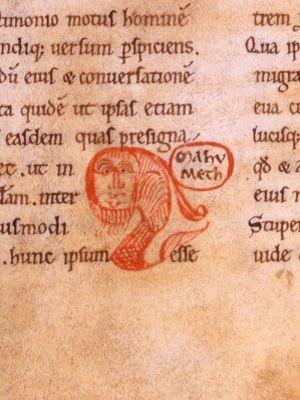 timonio motus hominē
ndiq; versum pspiciens.
dū eius & conversationē
ta quidē ut ipsas etiam
easdem quas presigna
et. ut in
lam. inter
usmodi
. hunc ipsum esse
Mahu
Meth
trem
Qua ip
migra
eua c
lucisq;
qđ & a
eius n
Stupe
uide